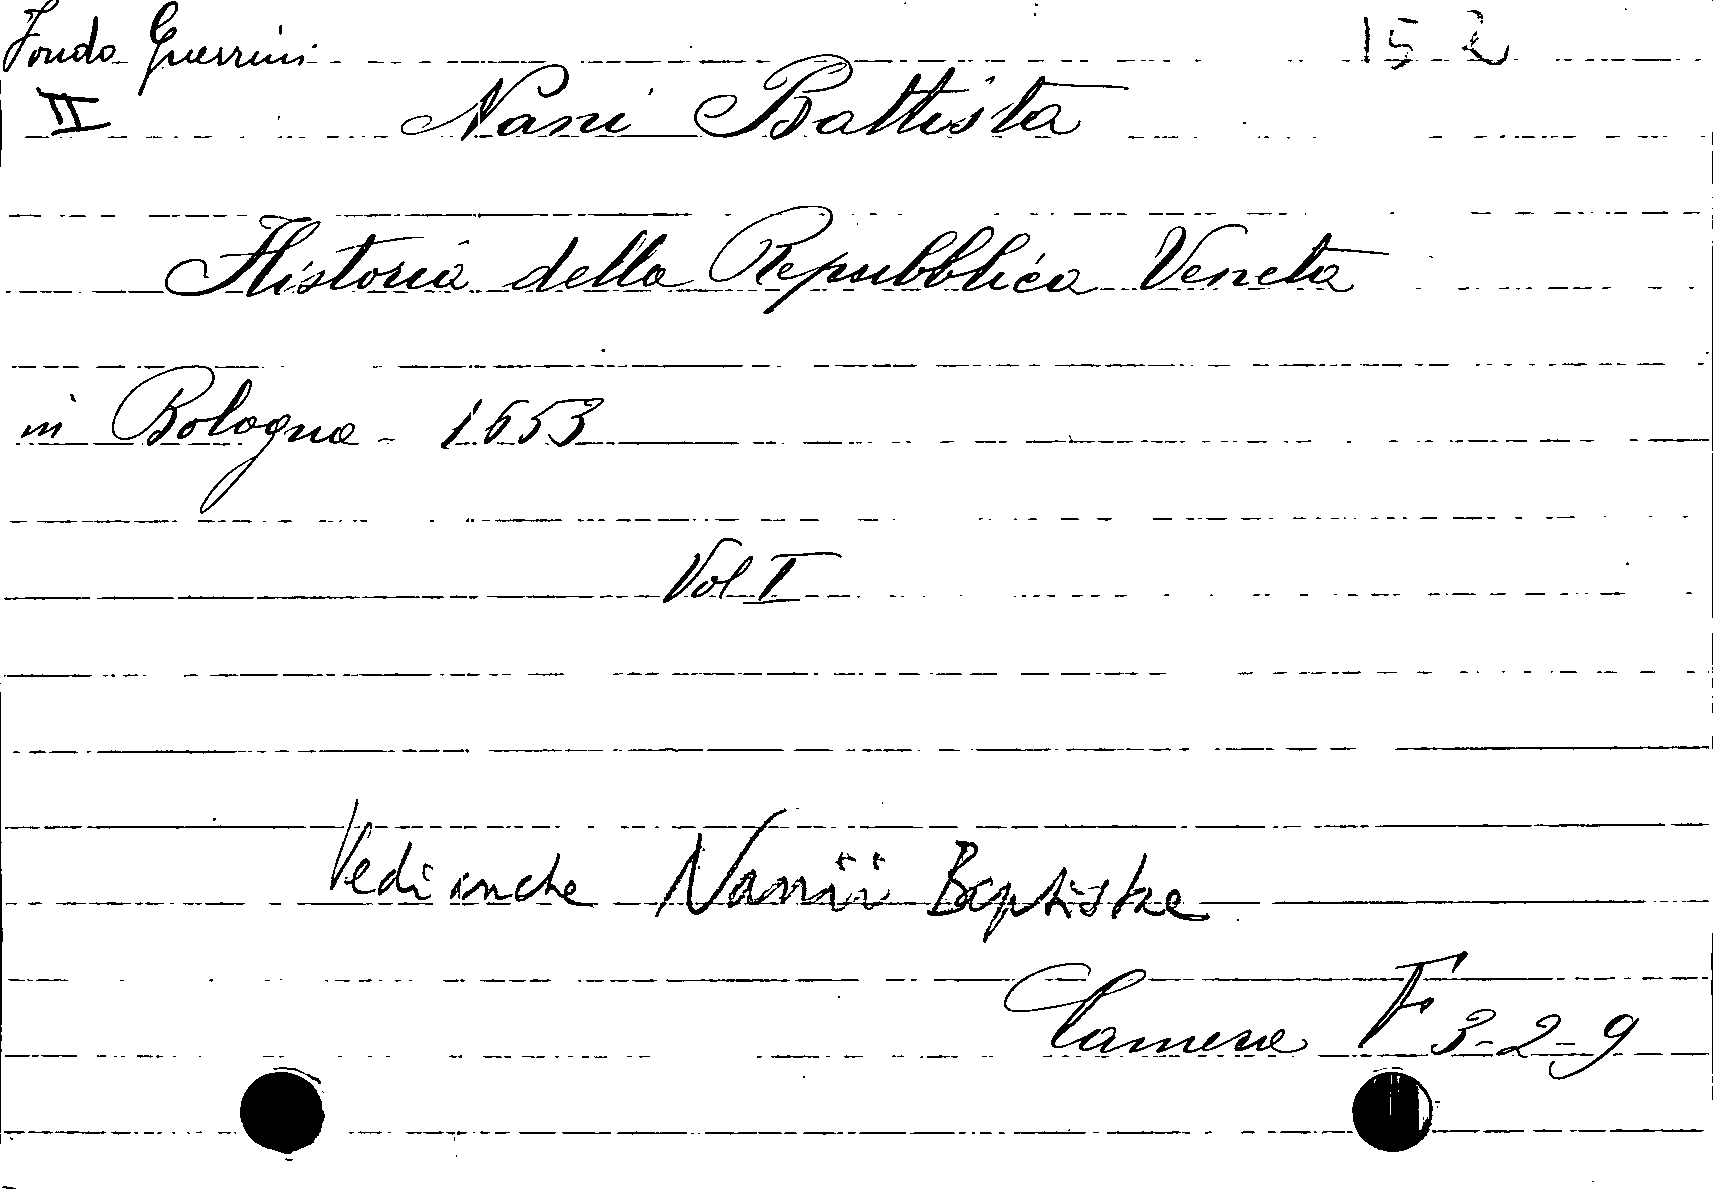 Fondo Guerrini 152
II Nani Battista
Historia della Repubblica Veneta
in Bologna - 1653
Vol I
Vedi anche Nanii Baptistae
Camera F 3-2-9